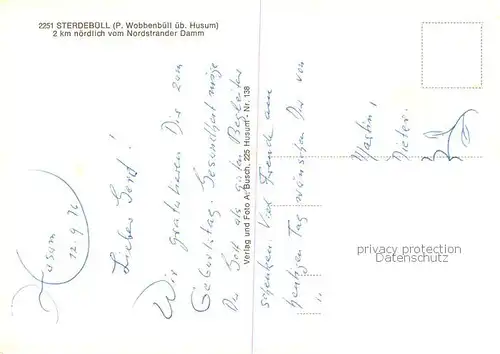 2251 STERDEBÜLL (P. Wobbenbüll üb. Husum)
2 km nördlich vom Nordstrander Damm
Husum
12.9.76
Lieber Gerd!
Wir gratulieren Dir zum
Geburtstag. Gesundheit möge
Dir Gott als guten Begleiter
schenken. Viel Freude am
heutigen Tag wünschen Dir von
Martin,
Dieter.
Verlag und Foto A. Busch, 225 Husum - Nr. 138
privacy protection
Datenschutz